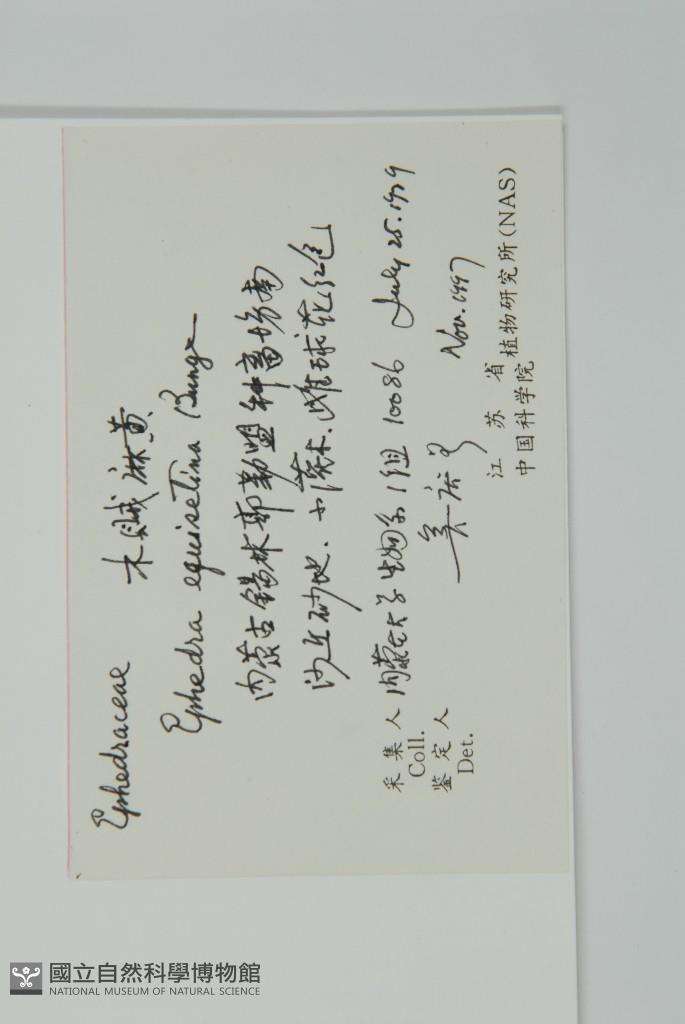 Ephedraceae 木賊麻黄
Ephedra equisetina Bunge
内蒙古錫林郭勒盟种畜场南
沙丘砂地、小灌木.雌球花红色
采集人 内蒙古大学生物系1组 10086 July 25.1979
Coll.
鉴定人 Nov. 1997
Det.
江苏省植物研究所(NAS)
中国科学院
國立自然科學博物館
NATIONAL MUSEUM OF NATURAL SCIENCE